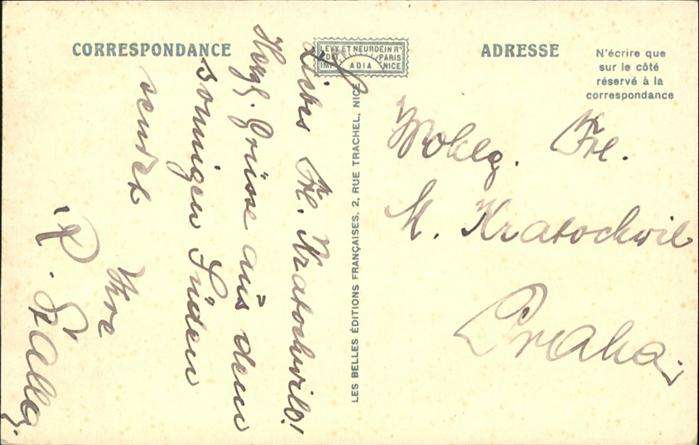 CORRESPONDANCE
LEVY ET NEURDEIN Rs
PARIS
IMP. ADIA NICE
ADRESSE
N'écrire que
sur le côté
réservé à la
correspondance
Liebes Frl. Kratochwil!
Herzl. Grüsse aus dem
sonnigen Süden
sendet
Ihre
LES BELLES ÉDITIONS FRANÇAISES, 2, RUE TRACHEL, NICE
Wohlg. Frl.
M. Kratochwil
Praha